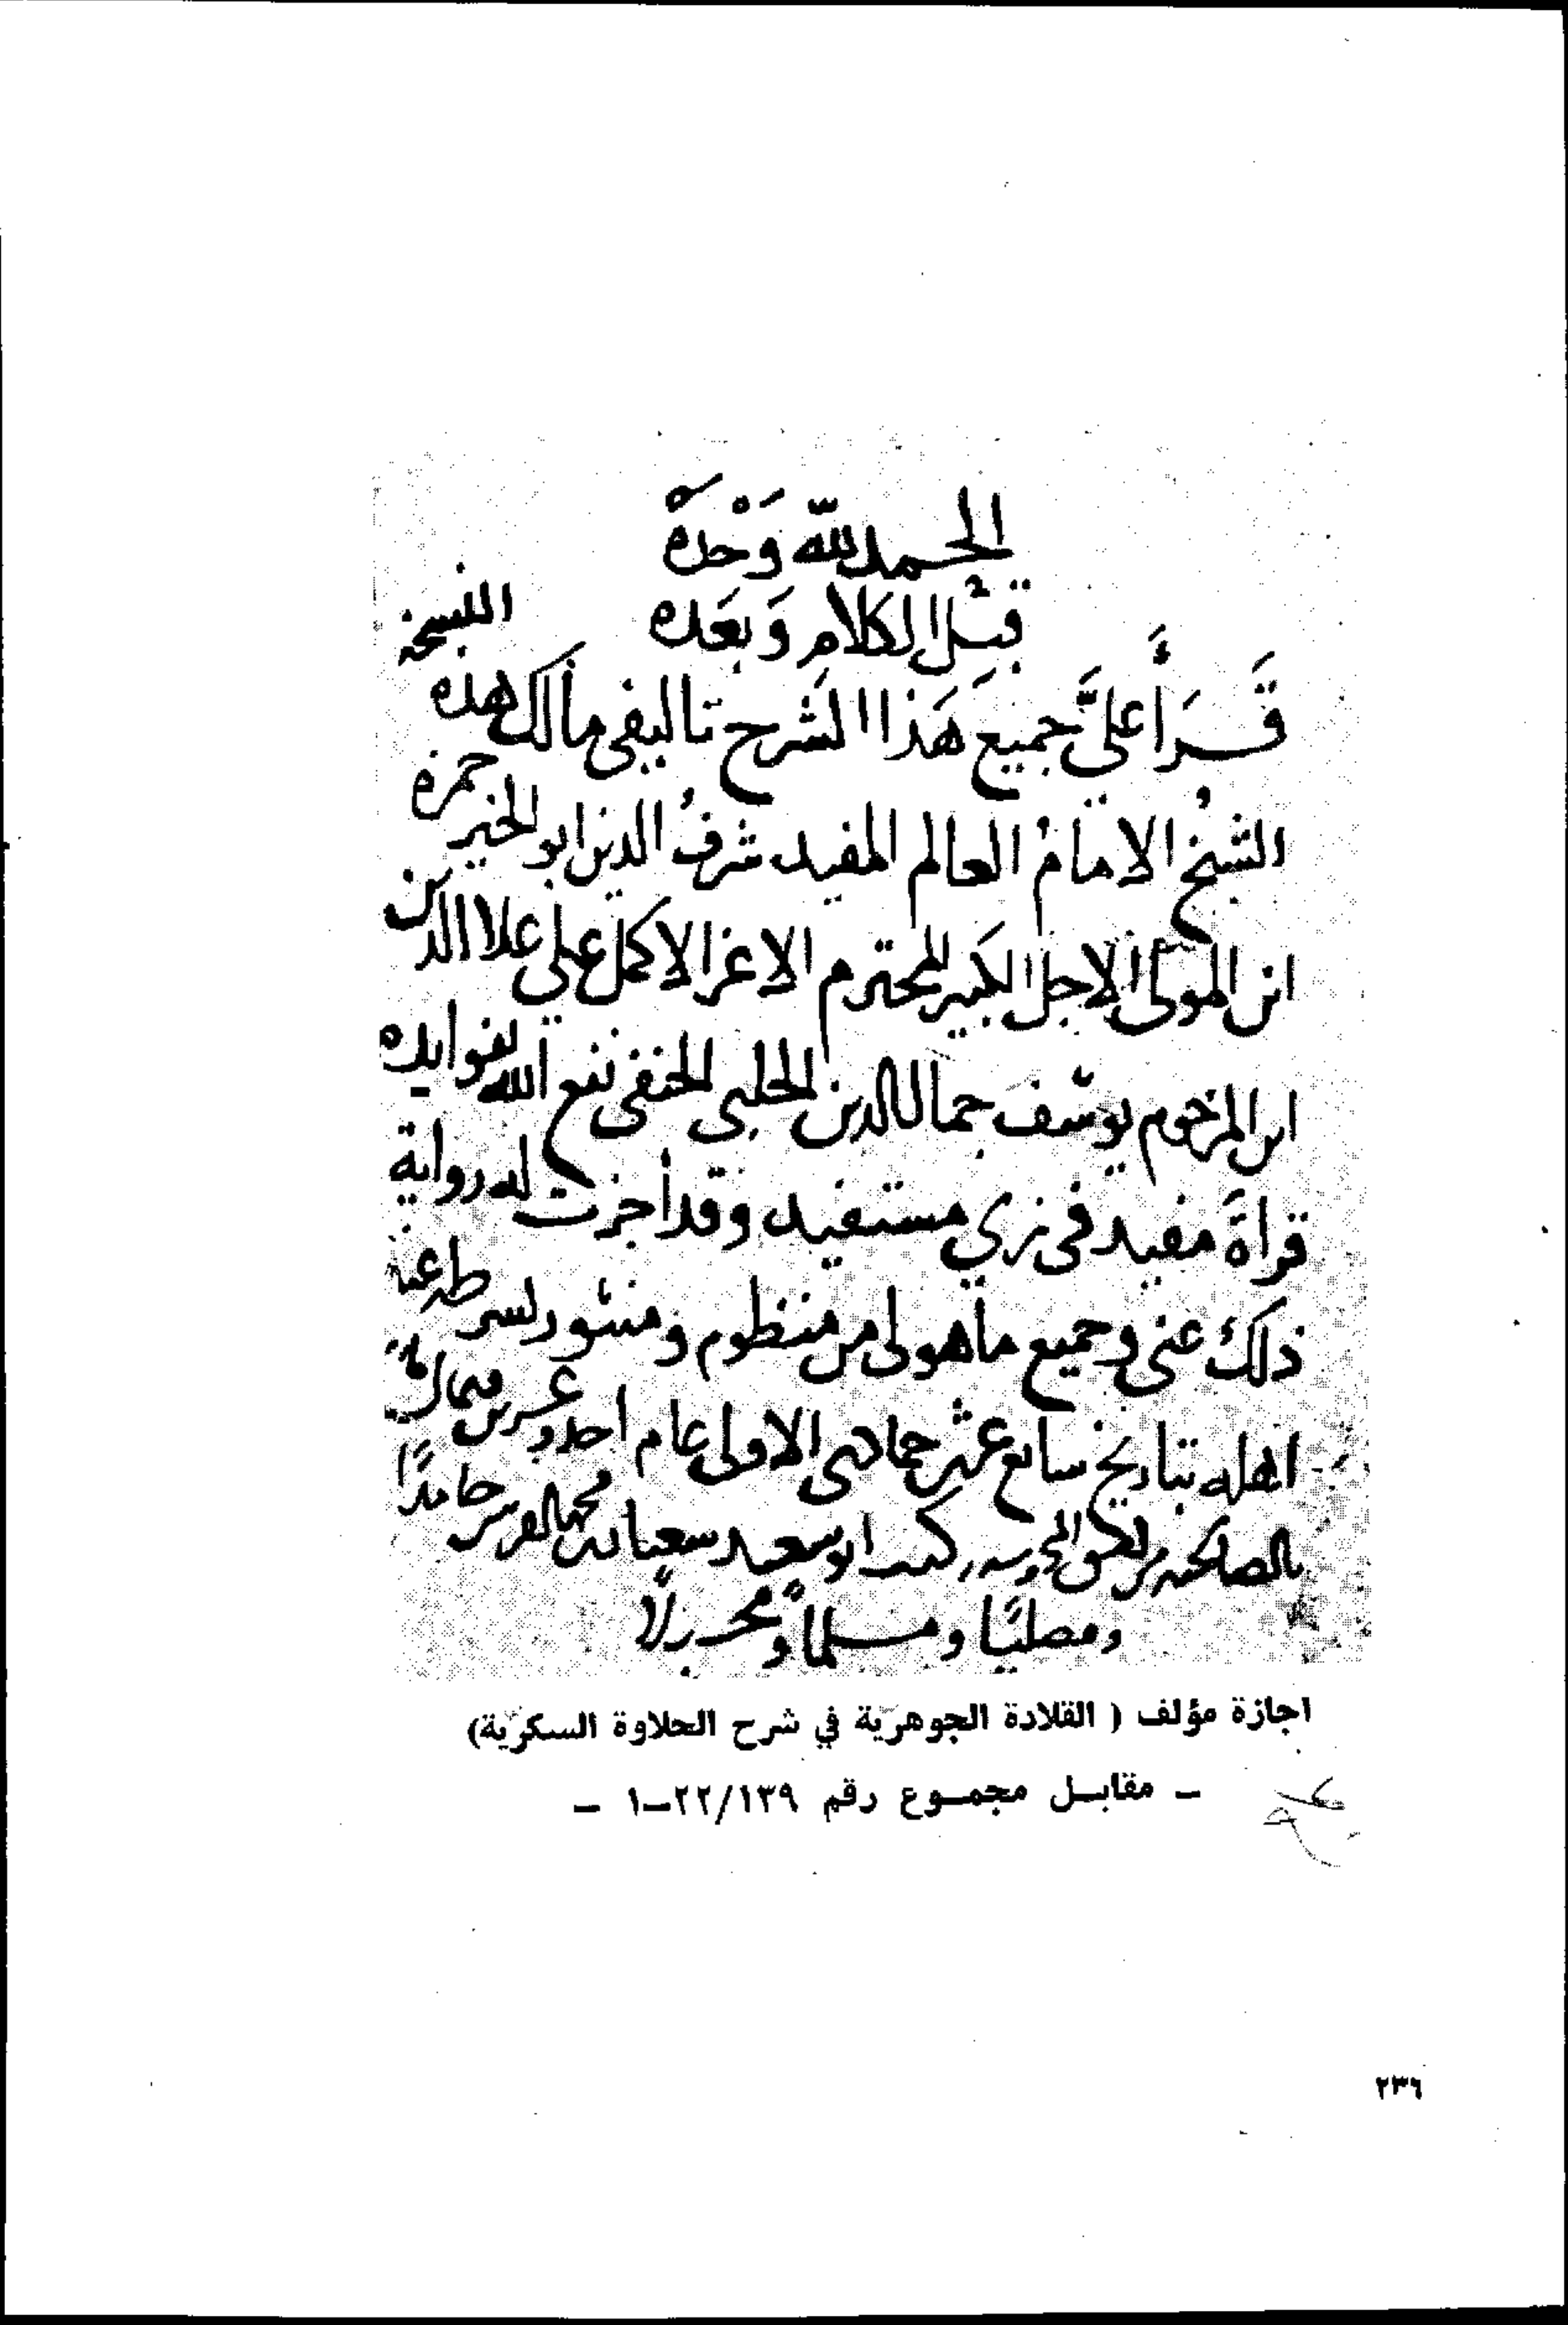 الحمد لله وَحْدَهُ
قبْل الكلامِ وَبعَده
قَرَأَ عليَّ جميع هَذا الشرح تاليفي مالك هذه النسخة
الشيخ الامامُ العالم المفيد شرفُ الدين ابو الخير حمزة
ابن المولى الاجل الكبير المحترم الاعز الاكمل علي علا الدين
ابن المرحوم يوسُفَ جمال الدين الحلبي الحنفي نفع الله بفوايده
قراةَ مفيد في زي مستفيد وقد أجزت له رواية
ذلك عني وجميع ما هو لي من منظوم ومنثور بشرطه عند
اهله بتاريخ سابع عشر جمادى الاولى عام احد وعشرين وثمانمائة
بالصالحية دمشق المحروسة وكتب ابو سعيد شعبان بن محمد القرشي حامدًا
ومصليًا ومسلمًا ومحسبلًا
اجازة مؤلف ( القلادة الجوهرية في شرح الحلاوة السكرية)
– مقابل مجموع رقم ٢٢/١٣٩–١ –
٢٣٦